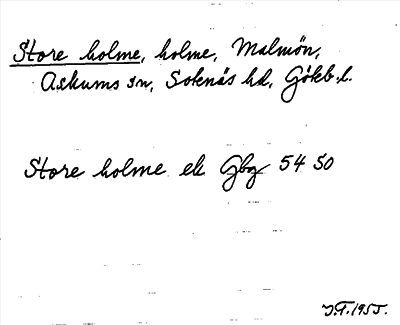 Store holme, holme, Malmön,
Askums sn, Sotenäs hd, Götcb. l.
Store holme ek Gbg 54 50
J.F. 1955.